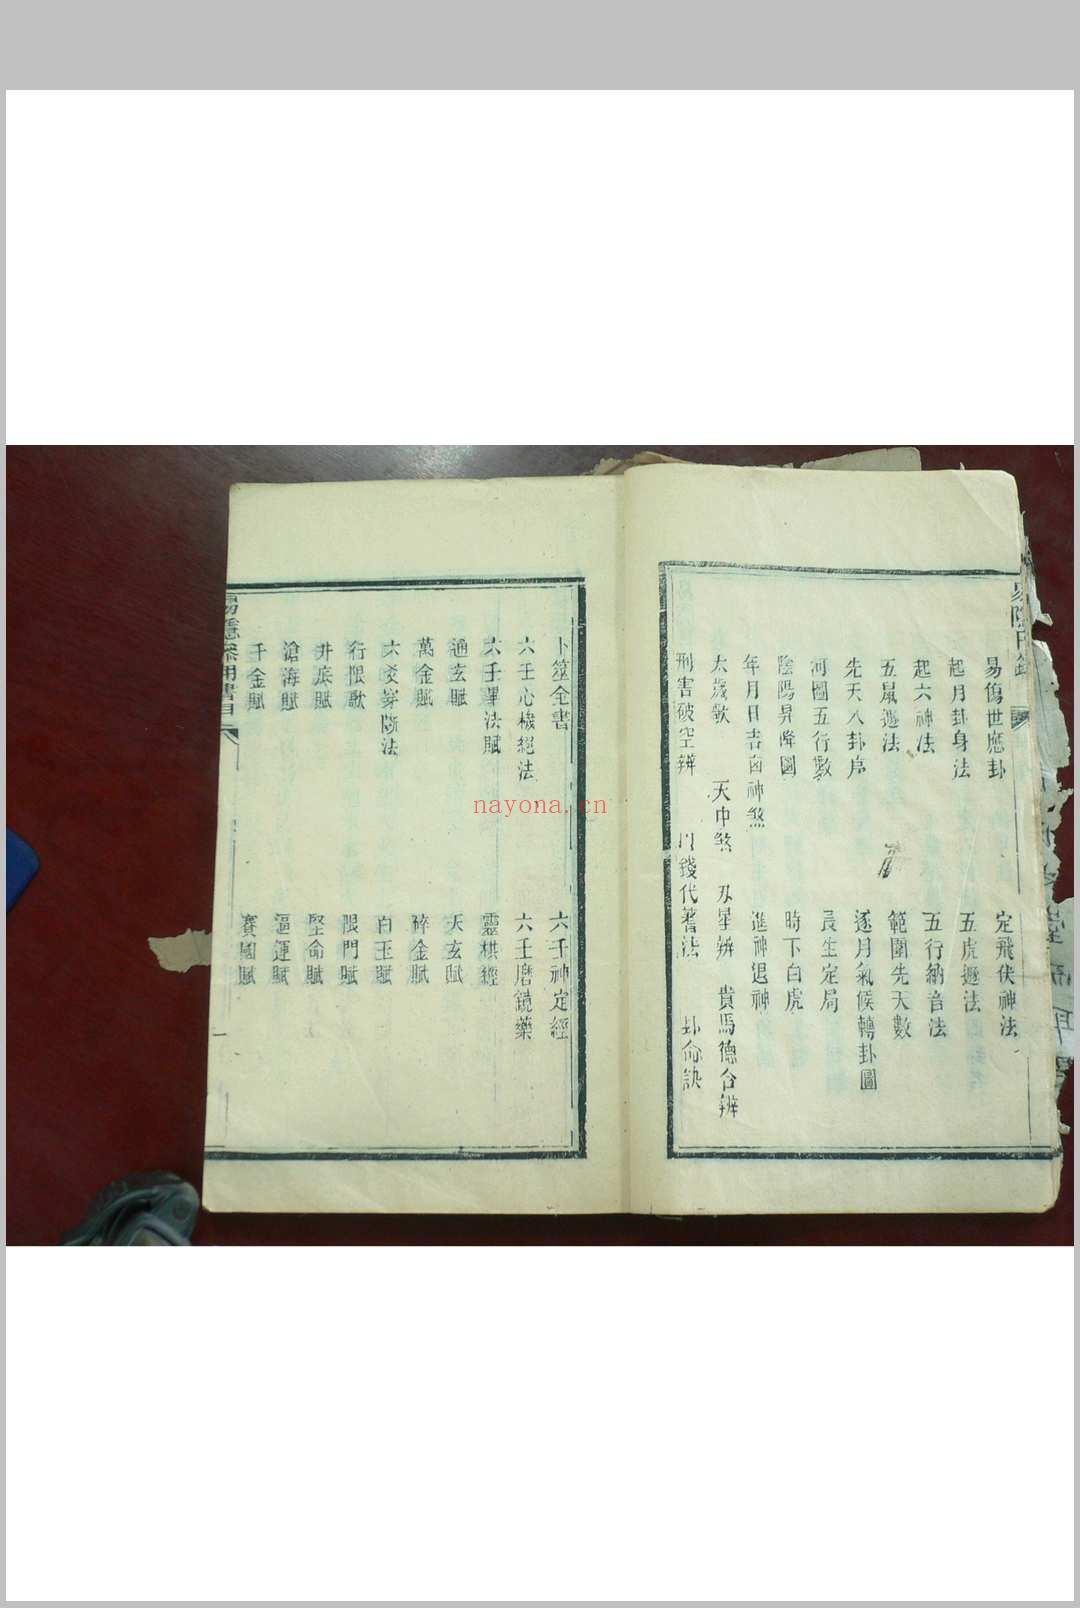 易傍世應卦
定飛伏神法
起月卦身法
五虎遁法
起六神法
五行納音法
五鼠遁法
範圍先天數
先天八卦序
逐月氣候轉卦圖
河圖五行數
長生定局
陰陽昇降圖
時下白虎
年月日吉凶神煞
進神退神
太歲歌
天中煞
刃星辨
貴馬德合辨
刑害破空辨
錢代蓍法
卦命訣
卜筮全書
六壬神定經
六壬心機絕法
六壬磨鏡藥
六壬畢法賦
靈棋經
通玄賦
天玄賦
萬金賦
碎金賦
六爻穿斷法
白玉賦
行限歌
限門賦
井底賦
堅命賦
滄海賦
漚運賦
千金賦
寶國賦
易隱參用書目
一
nayona.cn